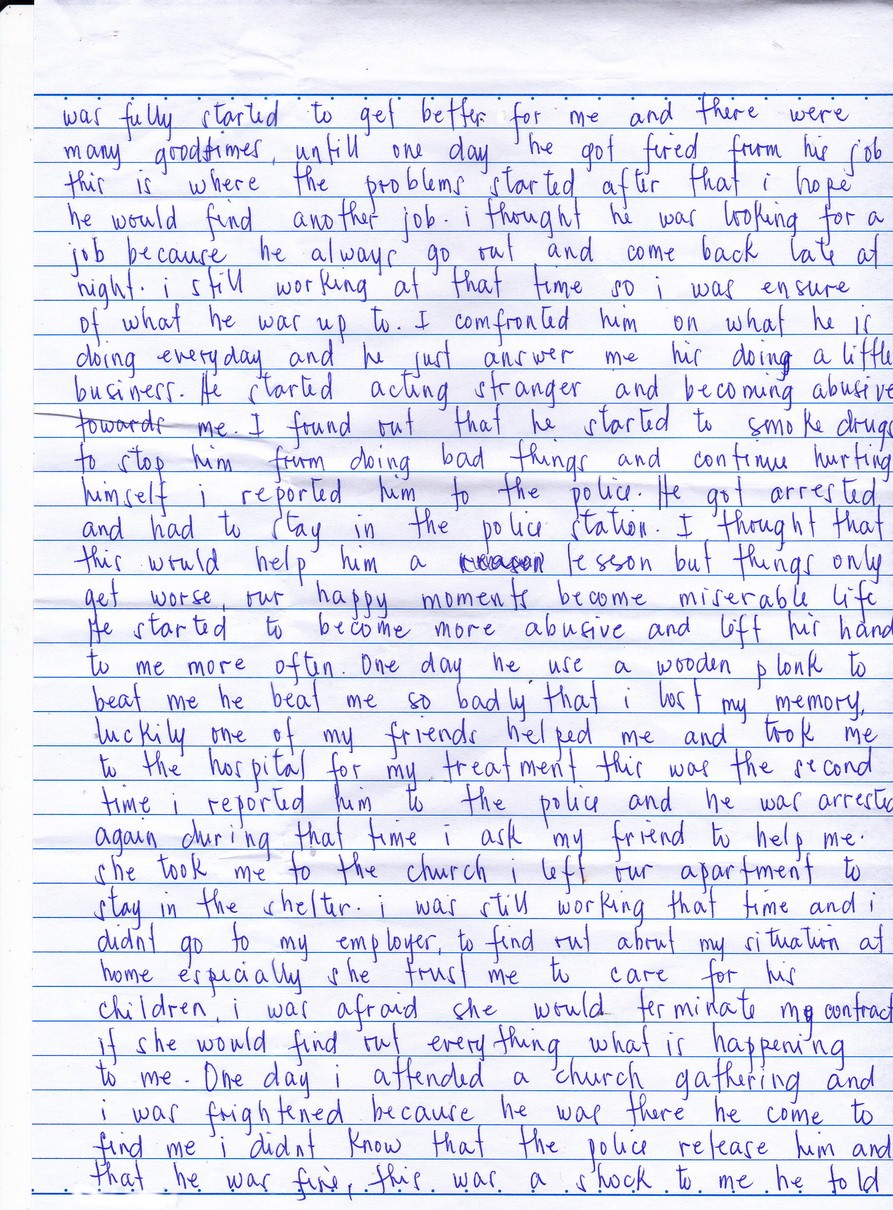 was fully started to get better for me and there were
many goodtimes, untill one day he got fired from his job
this is where the problems started after that i hope
he would find another job. i thought he was looking for a
job because he always go out and come back late at
night. i still working at that time so i was ensure
of what he was up to. I comfronted him on what he is
doing everyday and he just answer me his doing a little
business. He started acting stranger and becoming abusive
towards me. I found out that he started to smoke drugs
to stop him from doing bad things and continue hurting
himself i reported him to the police. He got arrested
and had to stay in the police station. I thought that
this would help him a lesson but things only
get worse, our happy moments become miserable life
He started to become more abusive and lift his hand
to me more often. One day he use a wooden plonk to
beat me he beat me so badly that i lost my memory,
luckily one of my friends helped me and took me
to the hospital for my treatment this was the second
time i reported him to the police and he was arrested
again during that time i ask my friend to help me.
she took me to the church i left our apartment to
stay in the shelter. i was still working that time and i
didnt go to my employer, to find out about my situation at
home especially she trust me to care for his
children, i was afraid she would terminate my contract
if she would find out everything what is happening
to me. One day i attended a church gathering and
i was frightened because he was there he come to
find me i didnt know that the police release him and
that he was fine, this was a shock to me he told